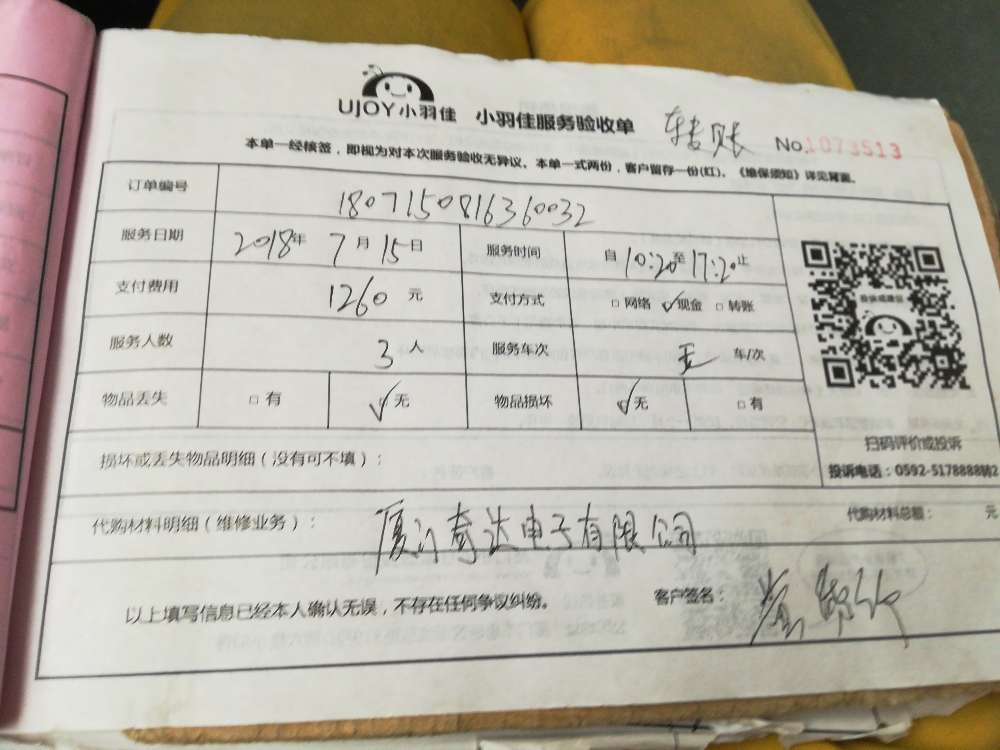 UJOY小羽佳 小羽佳服务验收单 转账 No.1073513
本单一经核签，即视为对本次服务验收无异议。本单一式两份，客户留存一份(红)。《维保须知》详见背面。
订单编号 1807150816360032
服务日期 2018年 7月15日 服务时间 自10:20至17:20止
支付费用 1260元 支付方式 □网络 ☑现金 □转账
服务人数 3人 服务车次 无 车/次
物品丢失 □有 ☑无 物品损坏 ☑无 □有
投诉或建议
扫码评价或投诉
投诉电话：0592-5178888转2
损坏或丢失物品明细（没有可不填）：
代购材料明细（维修业务）： 厦门奇达电子有限公司 代购材料总额： 元
以上填写信息已经本人确认无误，不存在任何争议纠纷。 客户签名：